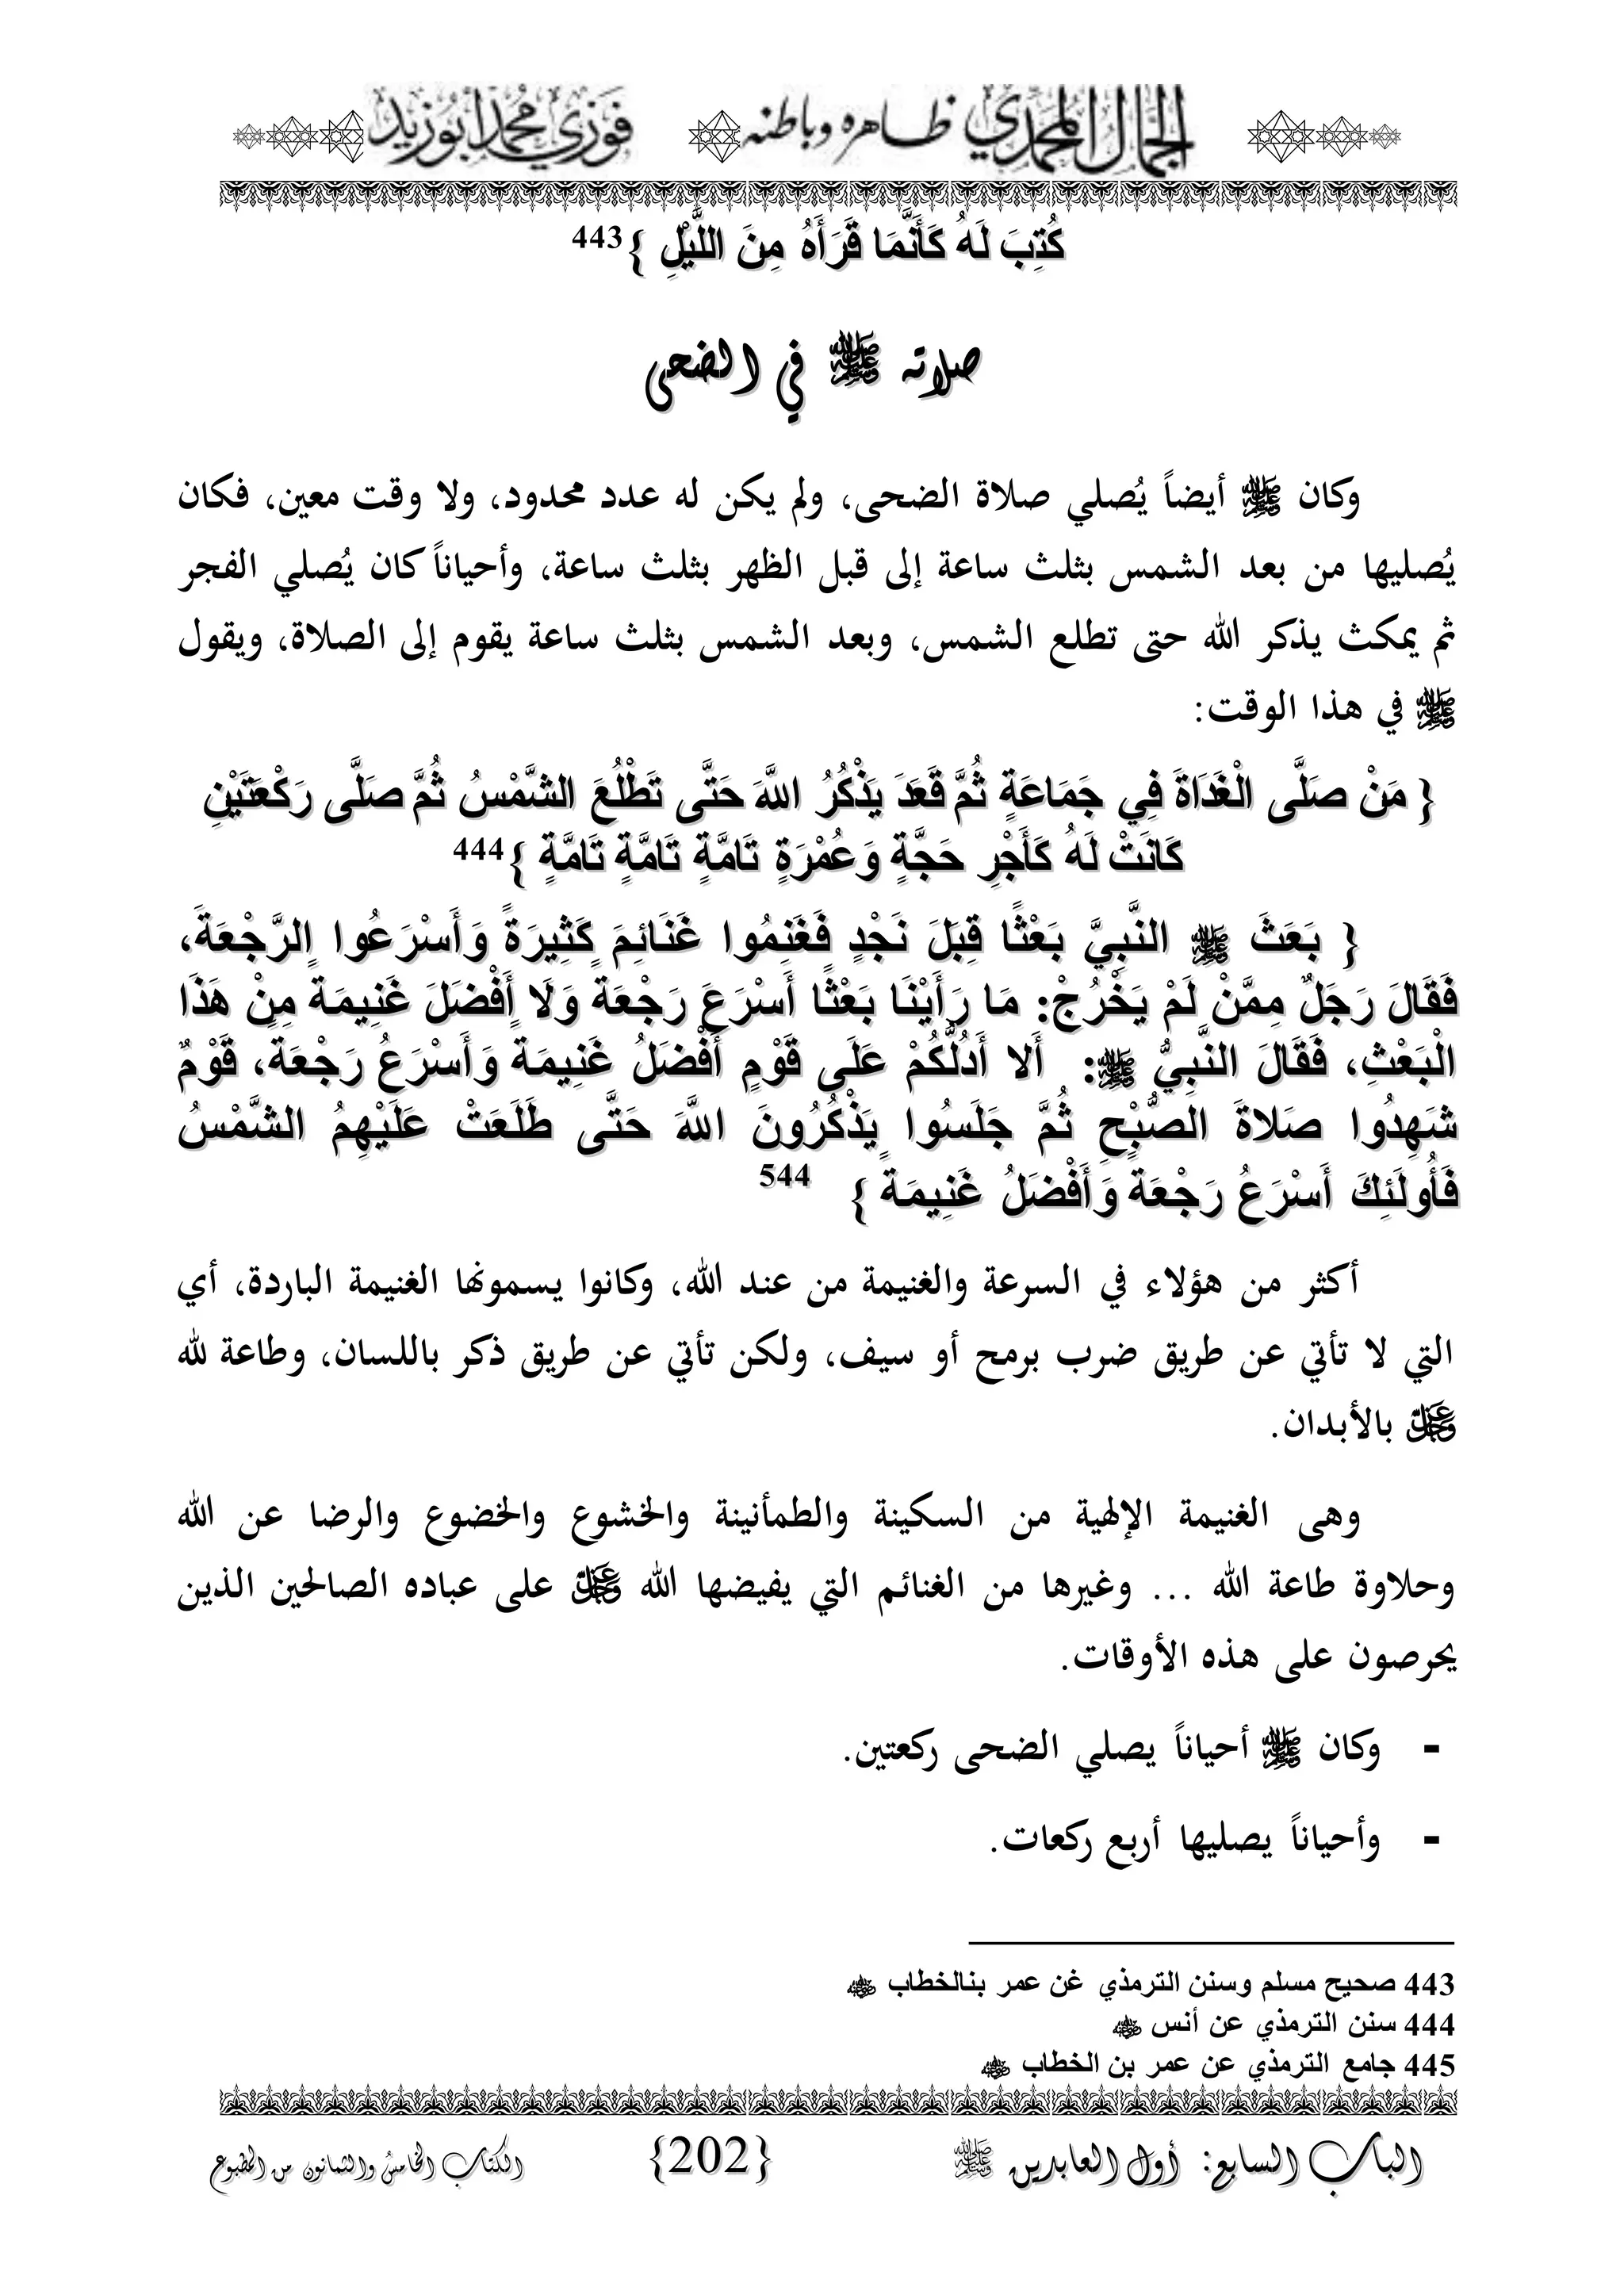 الجمال المحمدي ظاهره وباطنه فوزي محمد أبوزيد
كُتِبَ لَهُ كَأَنَّمَا قَرَأَهُ مِنَ اللَّيْلِ }443
صلاته ﷺ في الضحى
وكان ﷺ أيضاً يُصلي صلاة الضحى، ولم يكن له عدد محدود، ولا وقت معين، فكان
يُصليها من بعد الشمس بثلث ساعة إلى قبل الظهر بثلث ساعة، وأحياناً كان يُصلي الفجر
ثم يمكث يذكر الله حتى تطلع الشمس، وبعد الشمس بثلث ساعة يقوم إلى الصلاة، ويقول
ﷺ في هذا الوقت:
{ مَنْ صَلَّى الْغَدَاةَ فِي جَمَاعَةٍ ثُمَّ قَعَدَ يَذْكُرُ اللَّهَ حَتَّى تَطْلُعَ الشَّمْسُ ثُمَّ صَلَّى رَكْعَتَيْنِ
كَانَتْ لَهُ كَأَجْرِ حَجَّةٍ وَعُمْرَةٍ تَامَّةٍ تَامَّةٍ تَامَّةٍ }444
{ بَعَثَ ﷺ النَّبِيَّ بَعْثًا قِبَلَ نَجْدٍ فَغَنِمُوا غَنَائِمَ كَثِيرَةً وَأَسْرَعُوا الرَّجْعَةَ،
فَقَالَ رَجَلٌ مِمَّنْ لَمْ يَخْرُجْ: مَا رَأَيْنَا بَعْثًا أَسْرَعَ رَجْعَةً وَلَا أَفْضَلَ غَنِيمَةً مِنْ هَذَا
الْبَعْثِ، فَقَالَ النَّبِيُّ ﷺ: أَلا أَدُلُّكُمْ عَلَى قَوْمٍ أَفْضَلُ غَنِيمَةً وَأَسْرَعُ رَجْعَةً، قَوْمٌ
شَهِدُوا صَلاةَ الصُّبْحِ ثُمَّ جَلَسُوا يَذْكُرُونَ اللَّهَ حَتَّى طَلَعَتْ عَلَيْهِمُ الشَّمْسُ
فَأُولَئِكَ أَسْرَعُ رَجْعَةً وَأَفْضَلُ غَنِيمَةً } 544
أكثر من هؤلاء في السرعة والغنيمة من عند الله، وكانوا يسمونها الغنيمة الباردة، أي
التي لا تأتي عن طريق ضرب برمح أو سيف، ولكن تأتي عن طريق ذكر باللسان، وطاعة لله
عز وجل بالأبدان.
وهى الغنيمة الإلهية من السكينة والطمأنينة والخشوع والخضوع والرضا عن الله
وحلاوة طاعة الله ... وغيرها من الغنائم التي يفيضها الله عز وجل على عباده الصالحين الذين
يحرصون على هذه الأوقات.
- وكان ﷺ أحياناً يصلي الضحى ركعتين.
- وأحياناً يصليها أربع ركعات.
443 صحيح مسلم وسنن الترمذي غن عمر بنالخطاب رضي الله عنه
444 سنن الترمذي عن أنس رضي الله عنه
445 جامع الترمذي عن عمر بن الخطاب رضي الله عنه
الباب السابع: أول العابدين ﷺ {202} الكتاب الخامس والثمانون من المطبوع